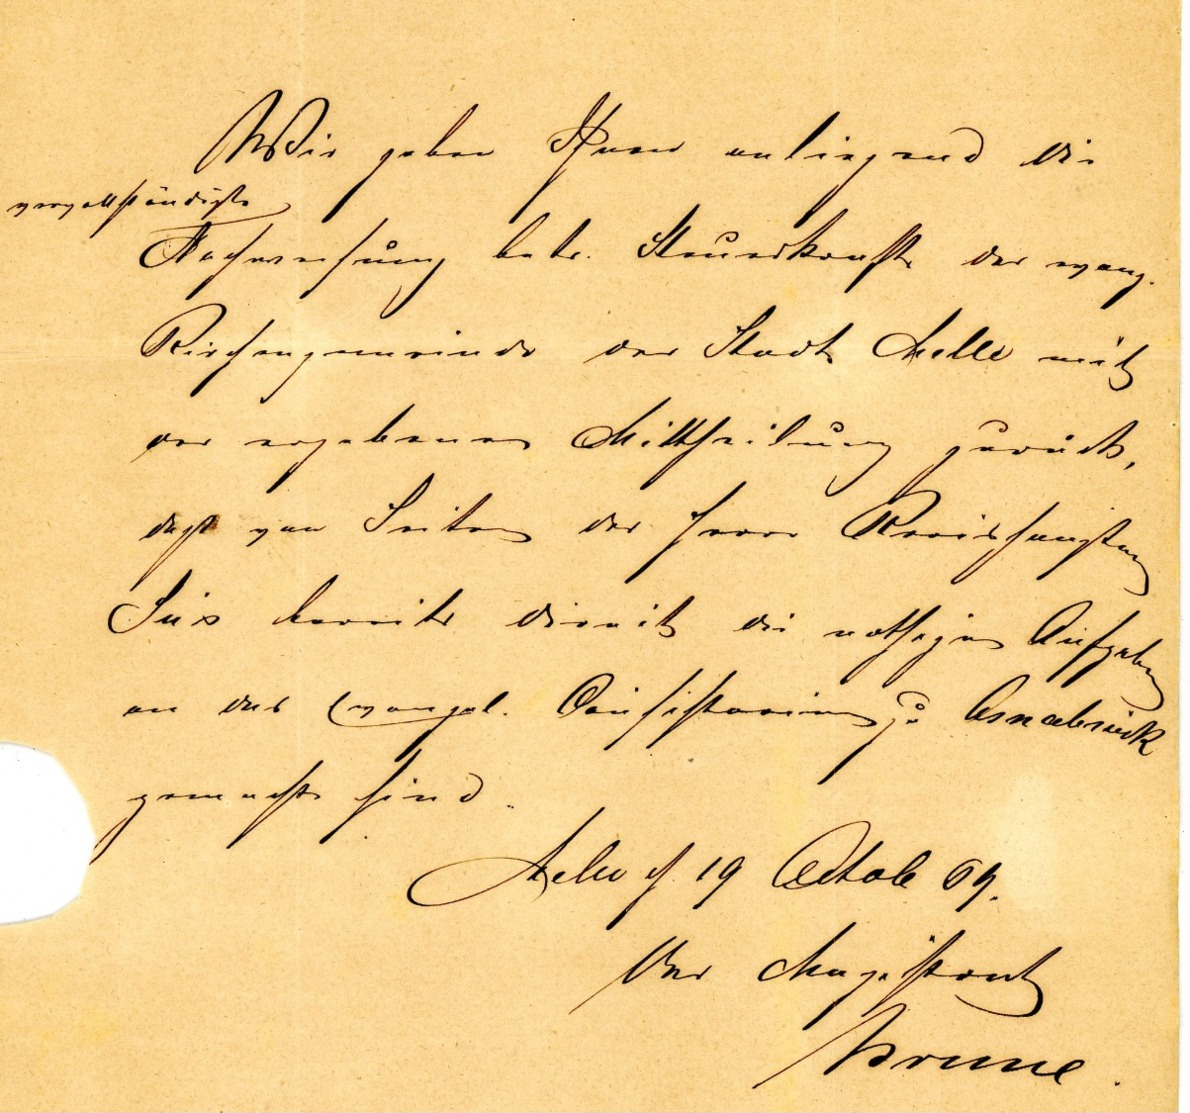 Wir geben Ihnen anliegend die
vervollständigte
Nachweisung betr. Steuerkräfte der evang.
Kirchengemeinde der Stadt Melle mit
der ergebenen Mittheilung zurück,
daß von Seiten des Herrn
bereits die nöthigen Aufgaben
an das Evangel. Consistorium zu Osnabrück
gemacht sind.
Melle d. 19 Octob 69.
Der Magistrat